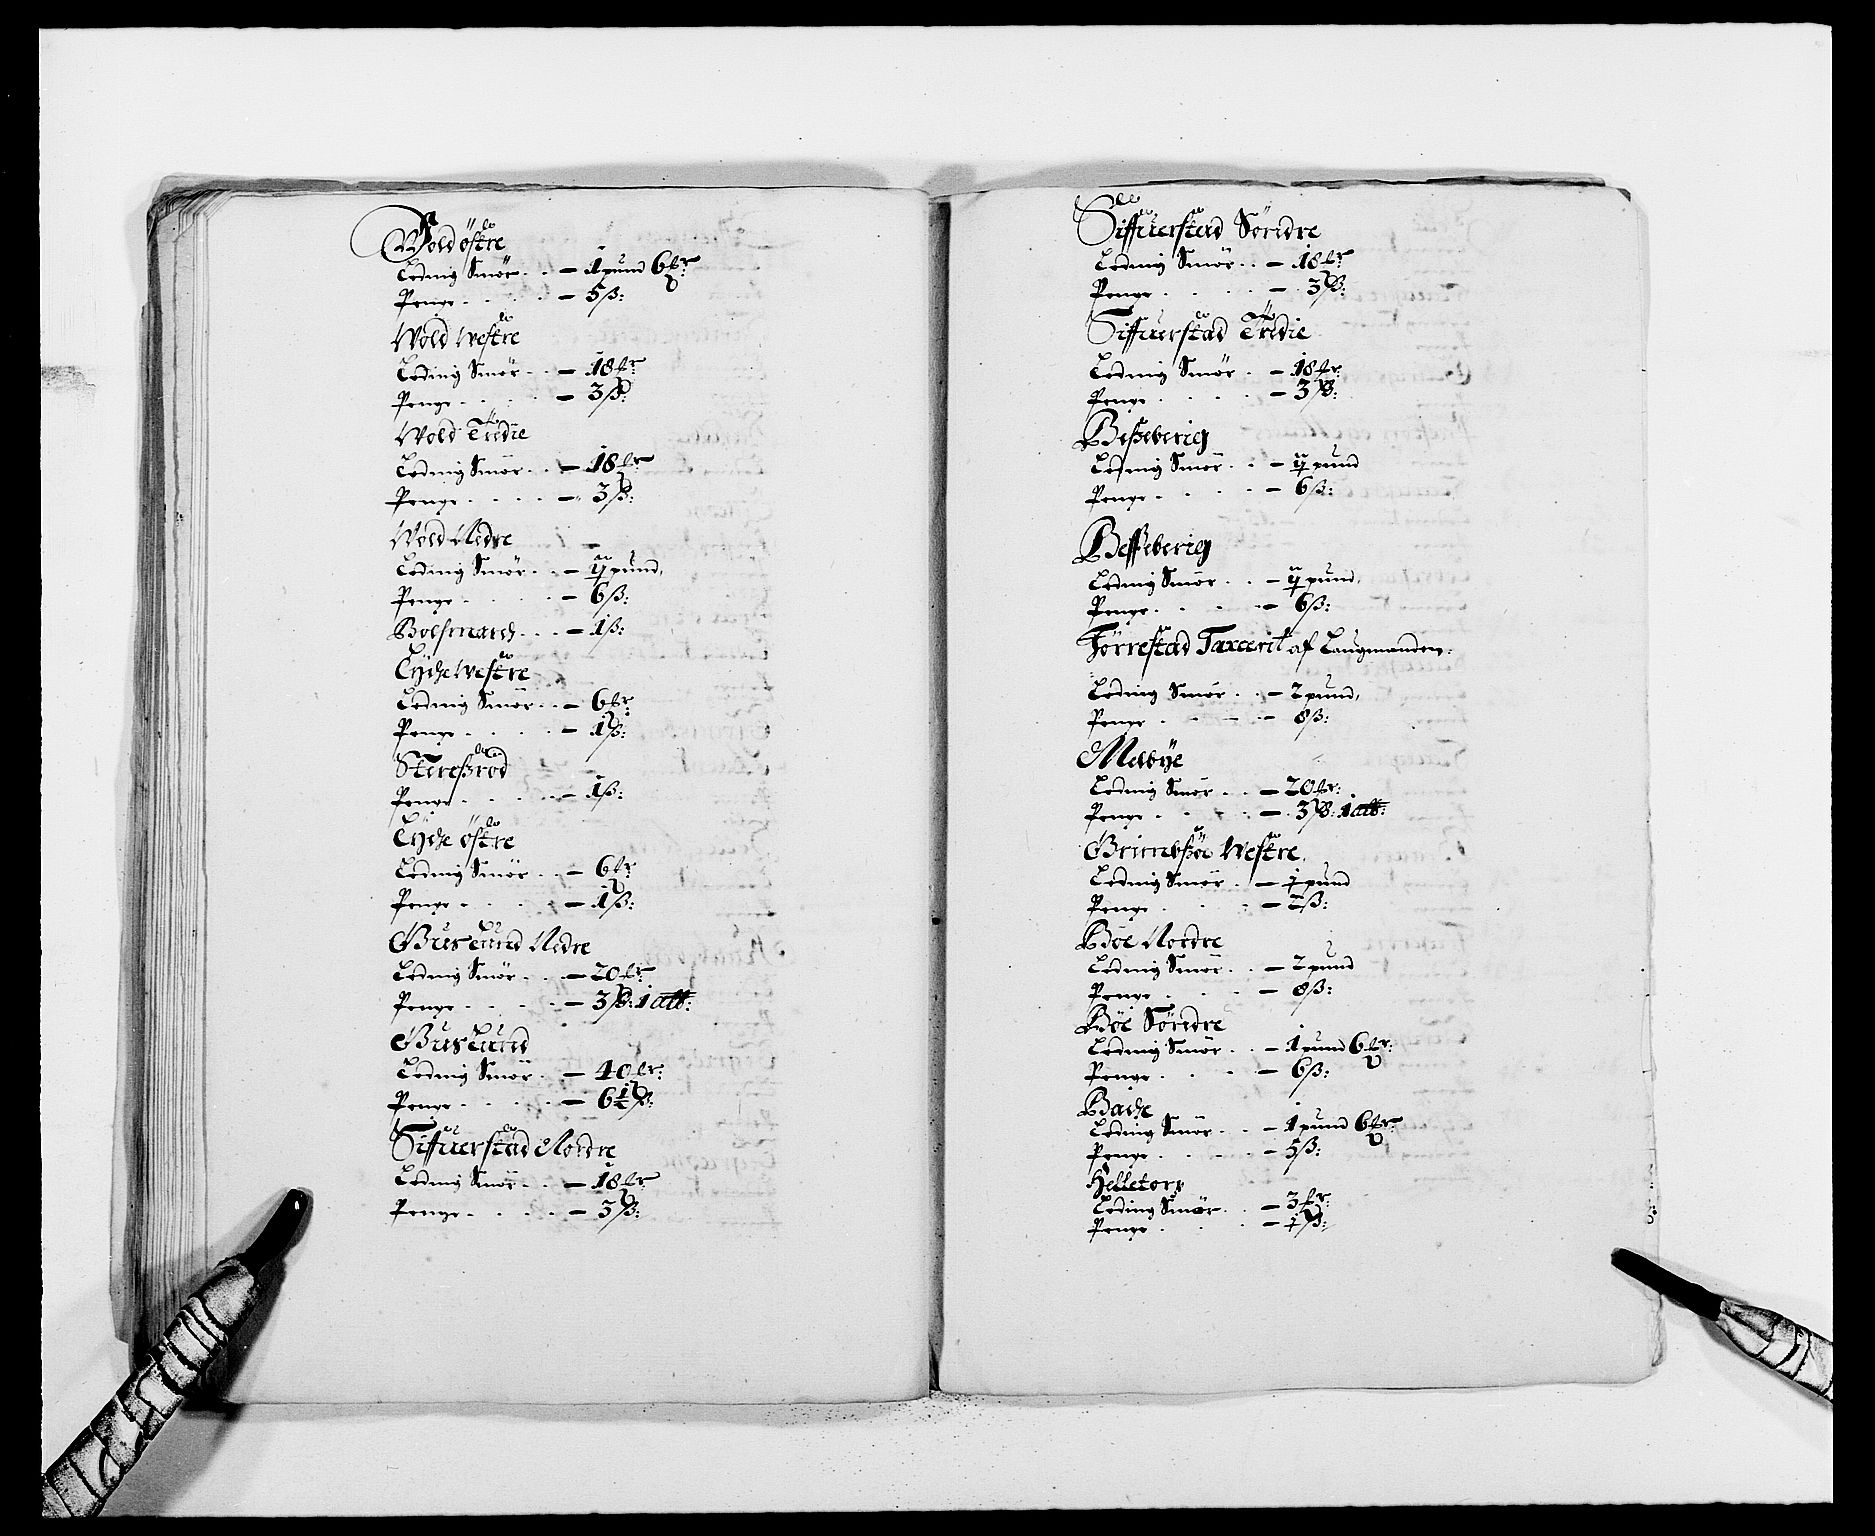 Wold östre
Leding Smör - 1 pund 6 ℔r:
Penge - 5 ß:
Wold Westre
Leding Smör - 18 ℔r:
Penge - 3 ß:
Wold Tredie
Leding Smör - 18 ℔r
Penge - 3 ß:
Wold Nedre
Leding Smör - ij pund,
Penge - 6 ß:
Bolsmarch - 1 ß:
Lyche Westre
Leding Smör - 6 ℔r:
Penge - 1 ß:
Steresrød
Penge - 1 ß:
Lyche östre
Leding Smör - 6 ℔r
Penge - 1 ß:
GusLund Nedre
Leding Smör - 20 ℔r:
Penge - 3 ß: 1 alb:
GusLund
Leding Smör - 40 ℔r:
Penge - 6½ ß:
Siffuerstad Nordre
Leding Smör - 18 ℔r
Penge - 3 ß:
Siffuerstad Söndre
Leding Smör - 18 ℔r
Penge - 3 ß:
Siffuerstad Tredie
Leding Smör - 18 ℔r:
Penge - 3 ß:
Beßeberig
Leding Smör - ij pund
Penge - 6 ß:
Besseberig
Leding Smör - ij pund,
Penge - 6 ß:
Torrestad Taxcerit af Laugmanden:
Leding Smör - 2 pund,
Penge - 8 ß:
Melbye
Leding Smör - 20 ℔r:
Penge - 3 ß: 1 alb:
Grimbsöe Westre
Leding Smör - ½ pund
Penge - 2 ß:
Böe Nordre
Leding Smör - 2 pund
Penge - 8 ß:
Böe Söndre
Leding Smör - 1 pund 6 ℔r:
Penge - 6 ß:
Bache
Leding Smör - 1 pund 6 ℔r:
Penge - 5 ß:
Helletorp
Leding Smör - 3 ℔r:
Penge - ½ ß: